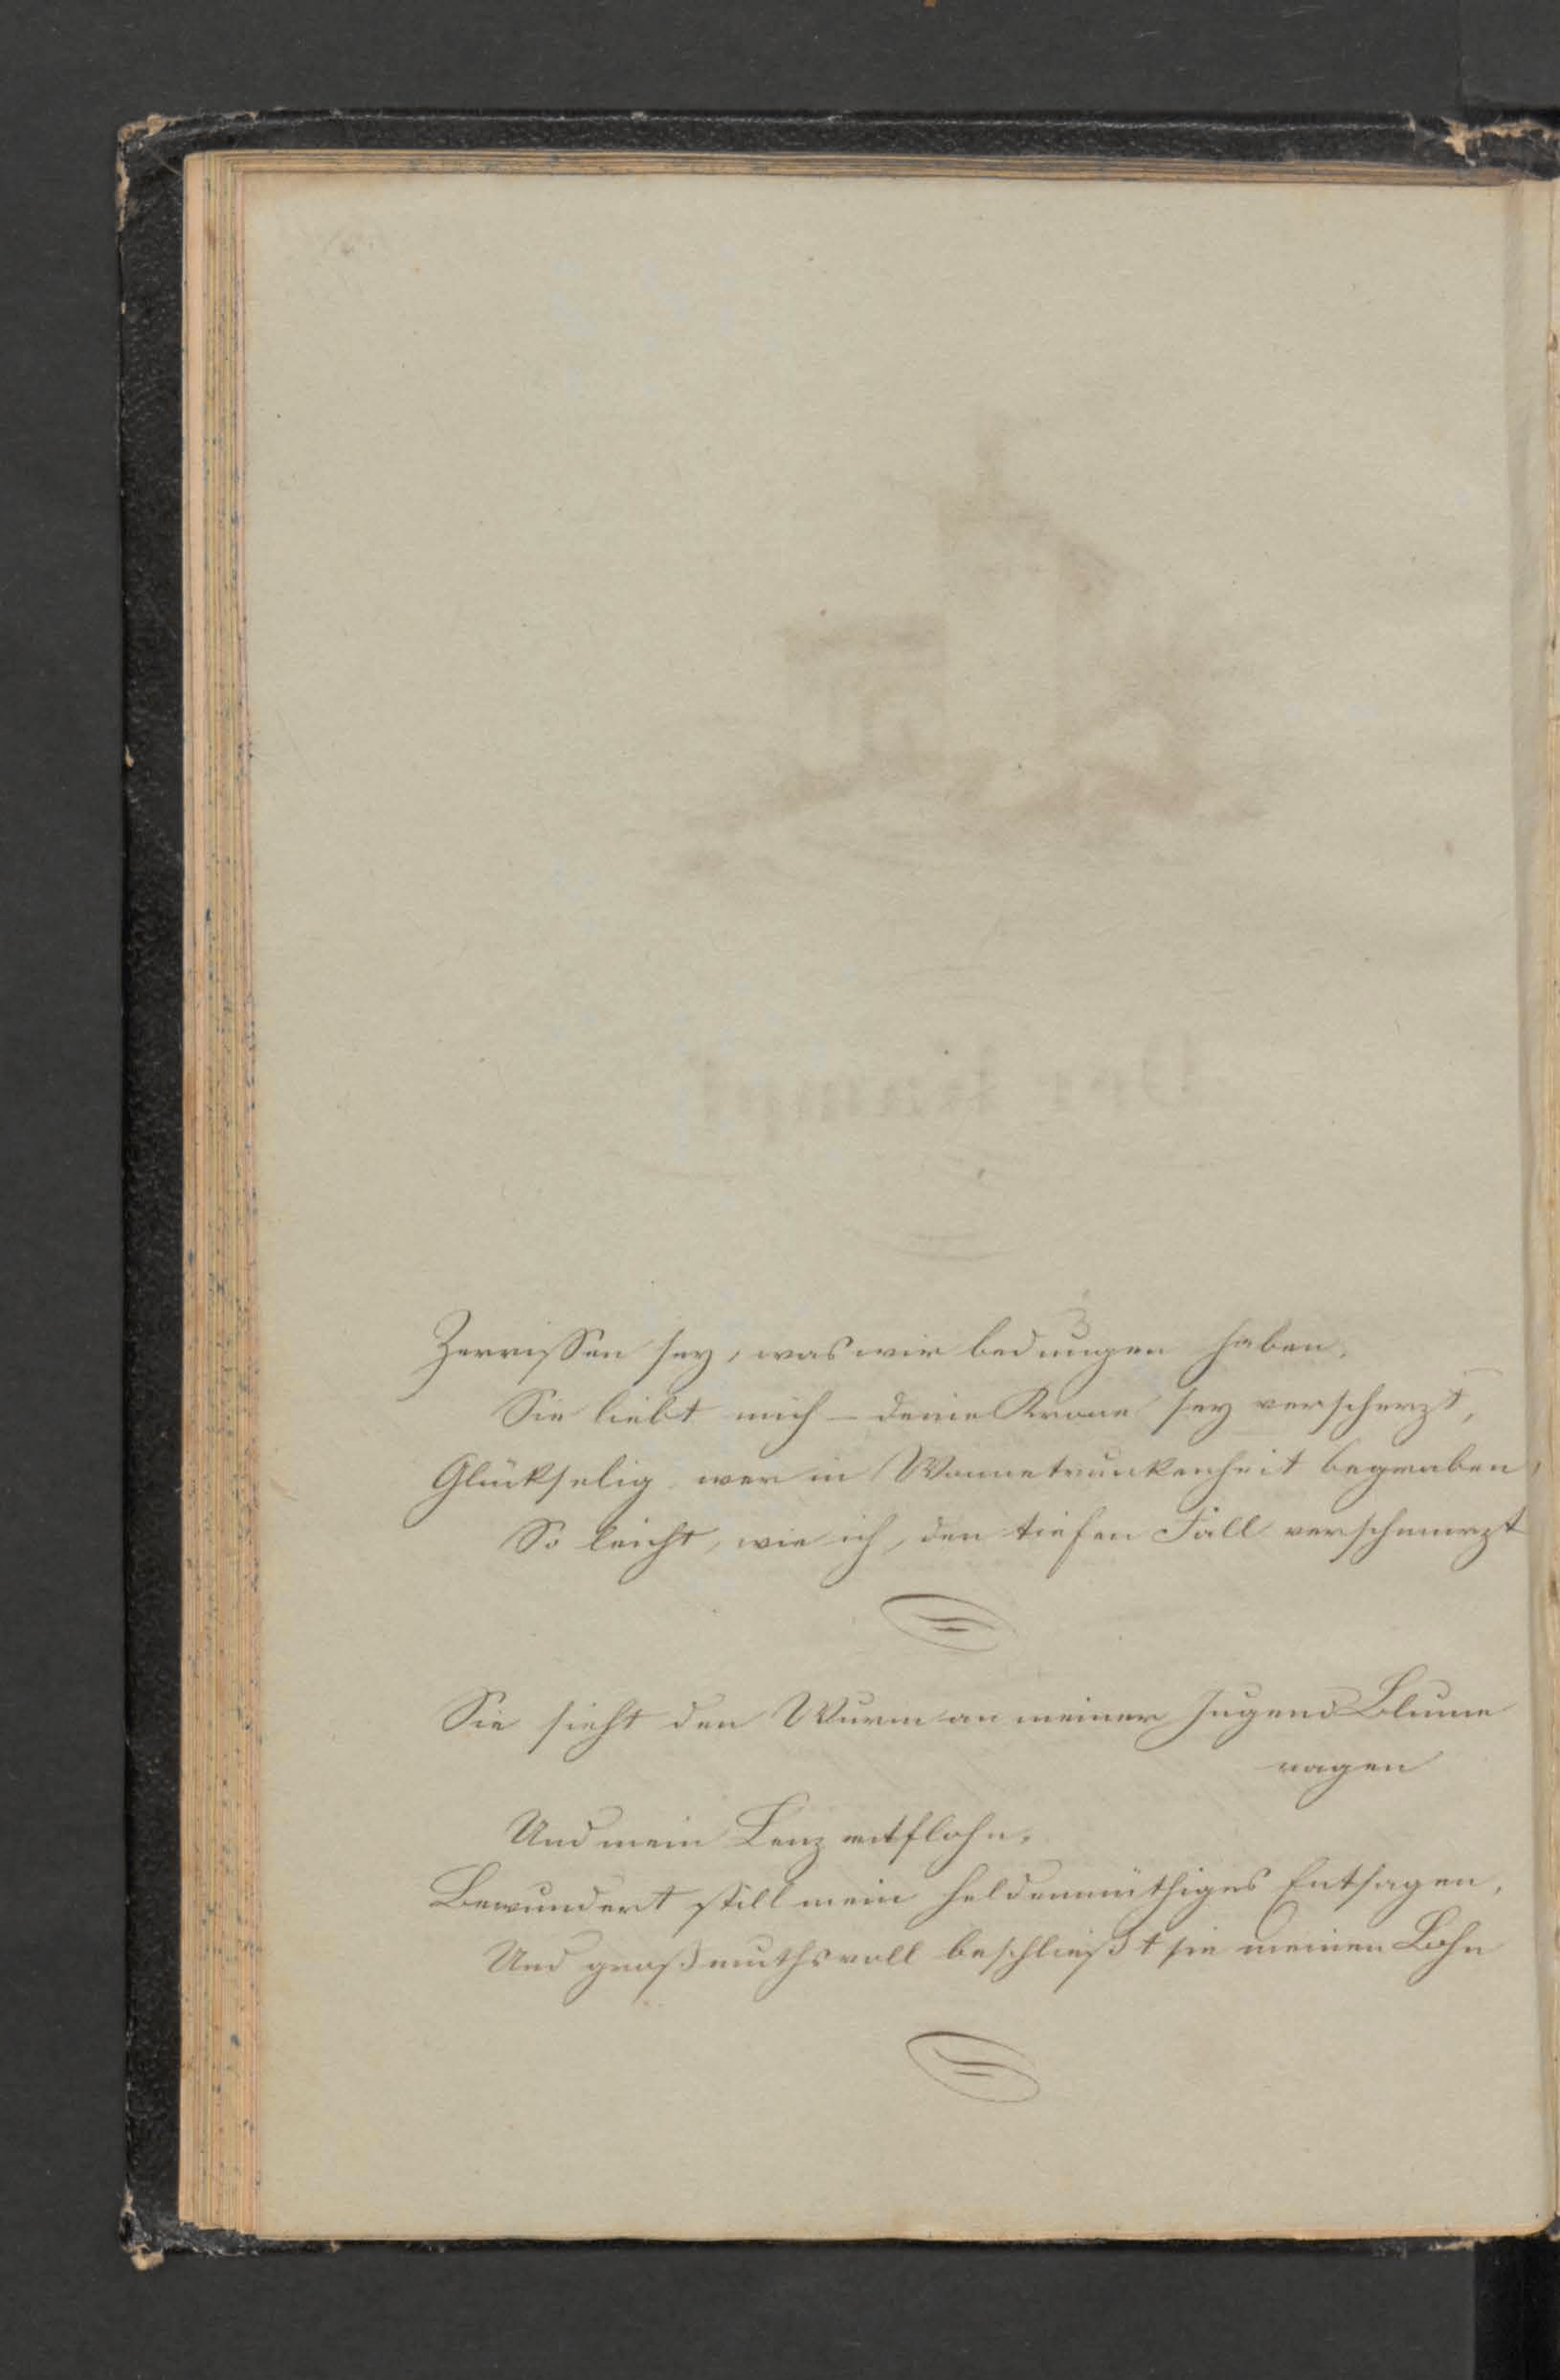 Zerrissen sey, was wir bedungen haben,
Sie liebt mich – deine Krone sey verscherzt,
Glückselig wer in Wonnetrunkenheit begraben,
So leicht, wie ich, den tiefen Fall verschmerzt
Sie sieht den Wurm an meiner Jugend Blume
nagen
Und mein Lenz entflohn,
Bewundert still mein heldenmüthiges Entsagen,
Und großmuthsvoll beschließt sie meinen Lohn